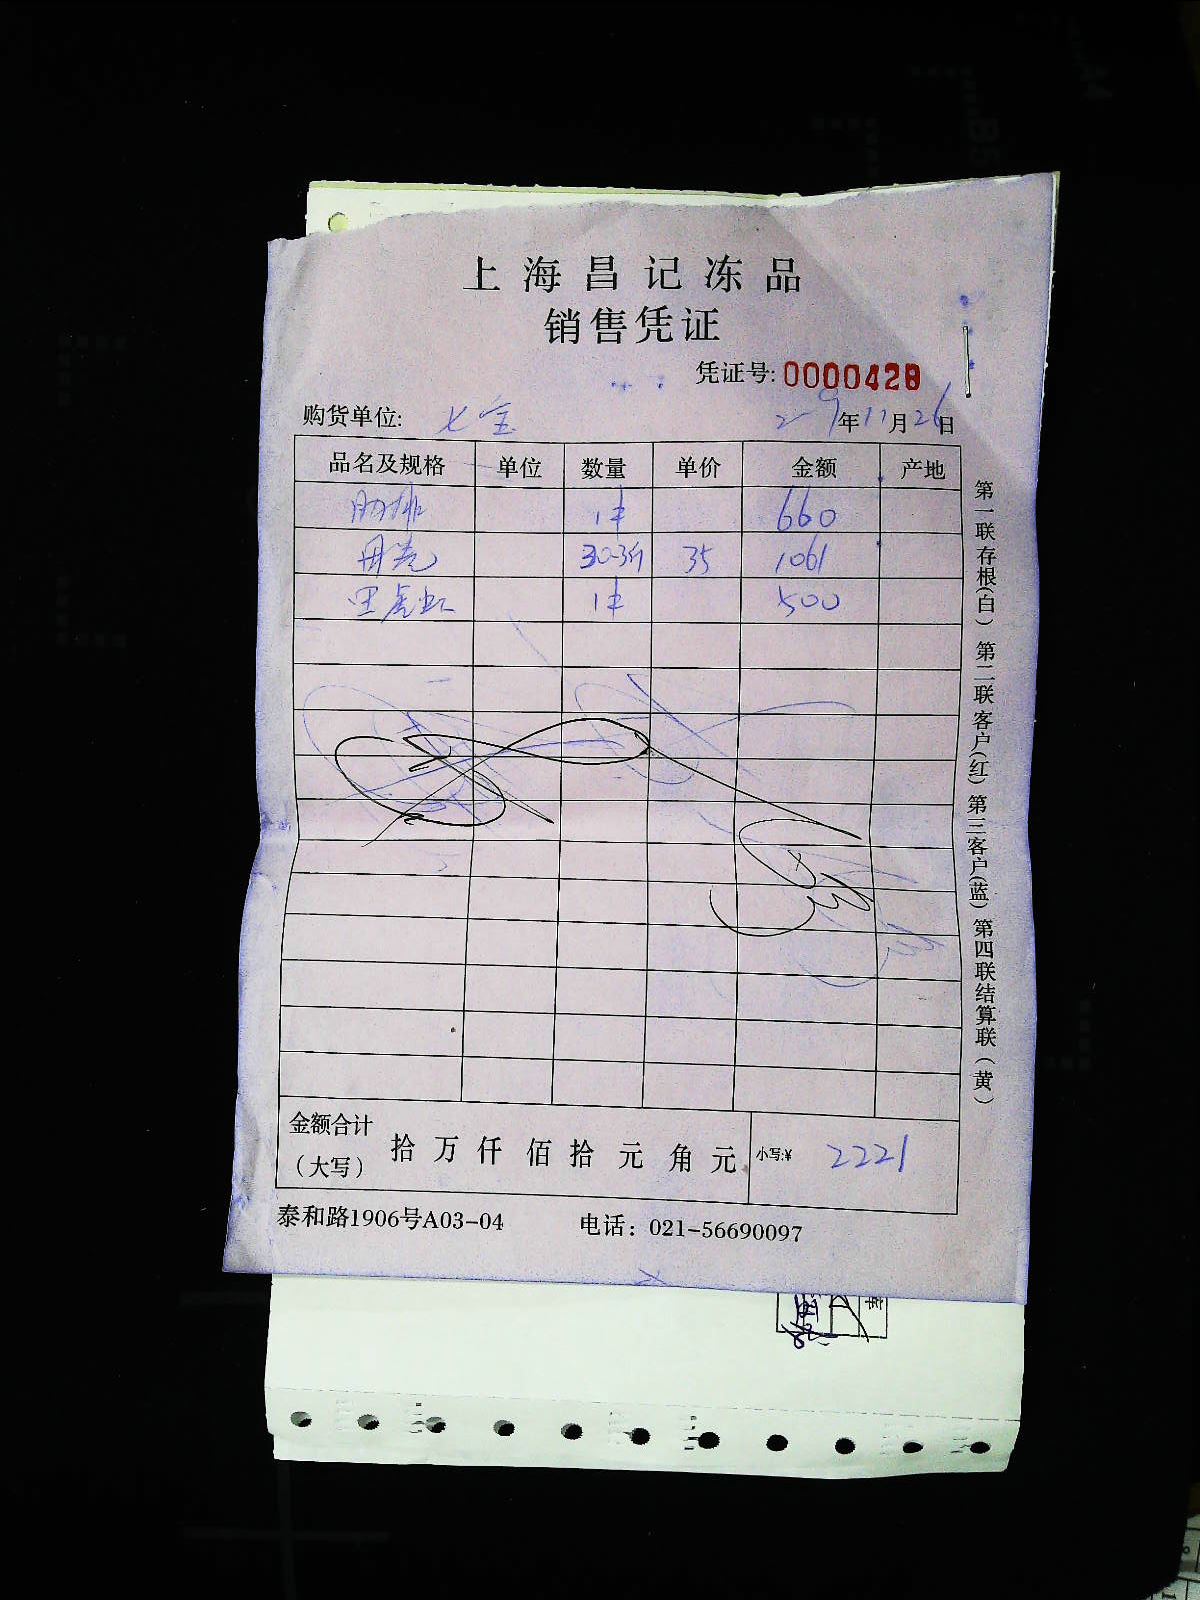 上海昌记冻品
销售凭证
凭证号: 0000428
购货单位: 七宝 2-9年11月26日
品名及规格 单位 数量 单价 金额 产地
肋排 1件 660
30.3斤 35 1061
黑虎虾 1件 500
金额合计（大写） 拾 万 仟 佰 拾 元 角 元 小写:¥ 2221
泰和路1906号A03-04 电话：021-56690097
第一联存根(白) 第二联客户(红) 第三客户(蓝) 第四联结算联(黄)